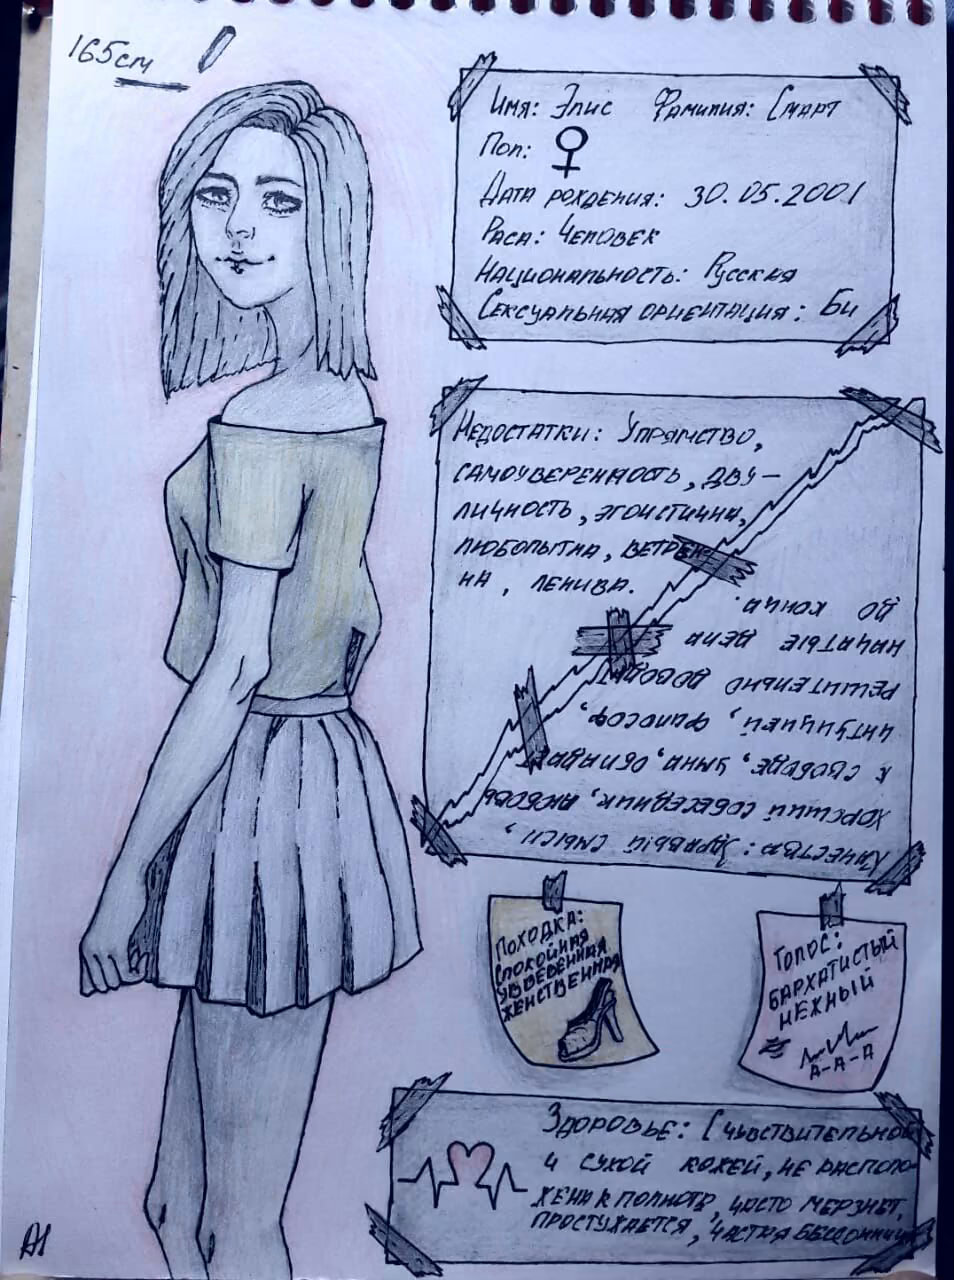 165см
Имя: Элис Фамилия: Смарт
Пол: ♀
Дата рождения: 30.05.2001
Раса: Человек
Национальность: Русская
Сексуальная ориентация: Би
Недостатки: Упрямство,
самоуверенность, дву-
личность, эгоистична,
любопытна, ветрен-
на, ленива.
Качества: Здравый смысл,
хороший собеседник, любовь
к свободе, умна, обладает
интуицией, философ,
решительно доводит
начатые дела
до конца.
Походка:
спокойная
уверенная
женственная
Голос:
бархатистый
нежный
А-А-А
Здоровье: С чувствительной
и сухой кожей, не располо-
жена к полноте, часто мерзнет,
простужается, частая бессонница